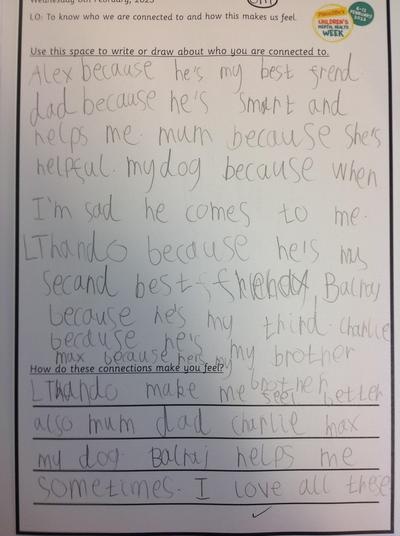 Wednesday 8th February, 2023
LO: To know who we are connected to and how this makes us feel.
CHILDREN'S
MENTAL HEALTH
WEEK
6-12
FEBRUARY
2023
Use this space to write or draw about who you are connected to.
Alex because he's my best frend
dad because he's smart and
helps me. mum because she's
helpful. my dog because when
I'm sad he comes to me.
LThando because he's my
secand best Balraj
because he's my third. charlie
because he's my brother
max because he's my
brother
How do these connections make you feel?
LThando make me feel better
also mum dad charlie max
my dog. Balraj helps me
sometimes. I love all these